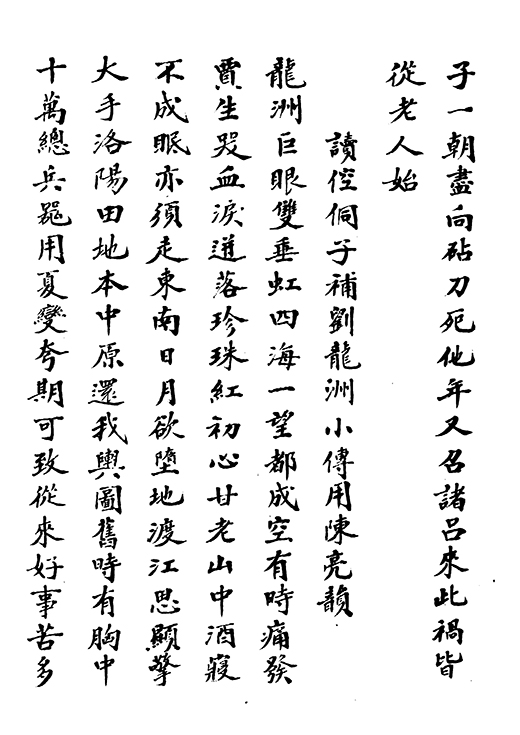 子一朝盡向砧刀死他年又召諸呂來此禍皆
從老人始
讀倥侗子補劉龍洲小傳用陳亮韻
龍洲巨眼雙垂虹四海一望都成空有時痛發
賈生哭血淚迸落珍珠紅初心甘老山中酒寢
不成眠亦須走東南日月欲墮地渡江思顯擎
大手洛陽田地本中原還我輿圖舊時有胸中
十萬總兵器用夏變夸期可致從來好事苦多